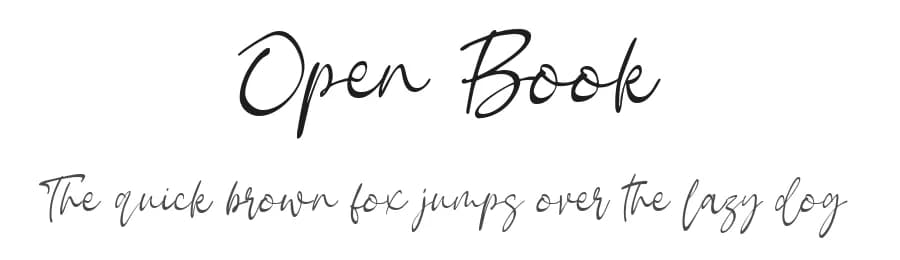 Open Book
The quick brown fox jumps over the lazy dog